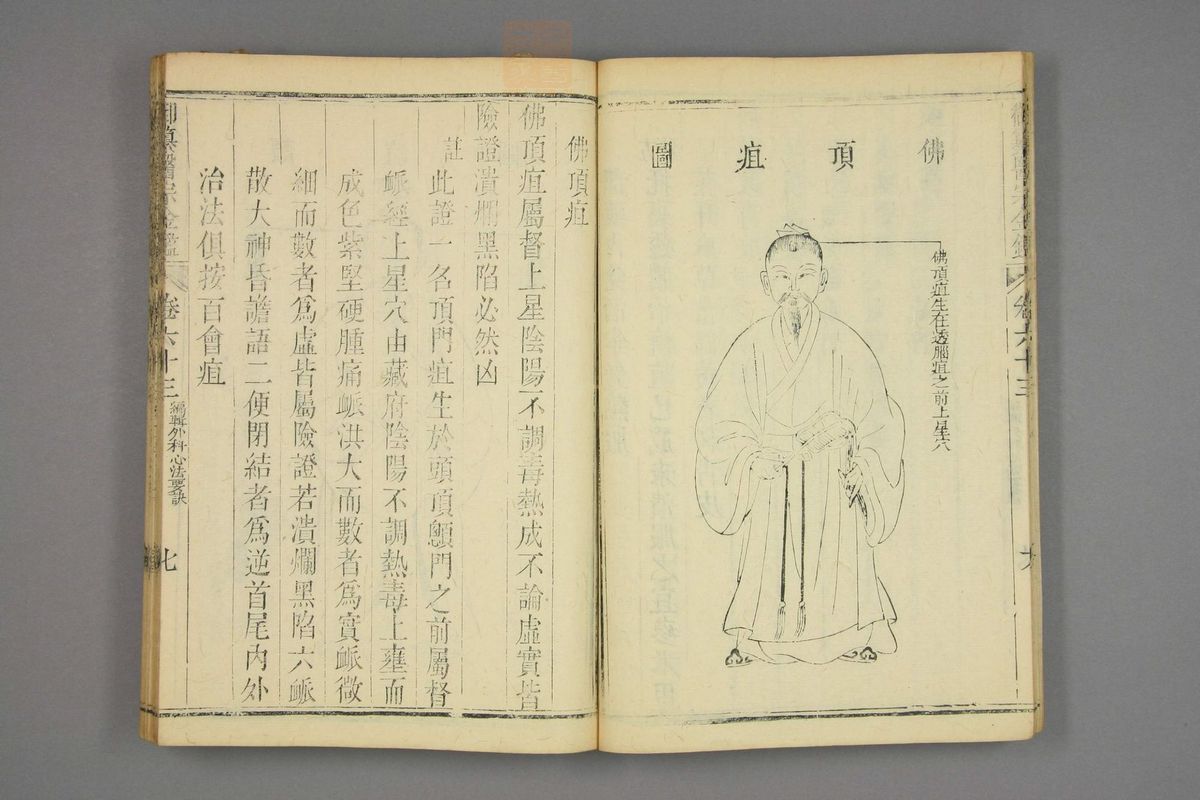 佛頂疽圖
佛頂疽生在透腦疽之前上星穴
佛頂疽
佛頂疽屬督上星陰陽不調毒熱成不論虛實皆
險證潰爛黑陷必然凶
註
此證一名頂門疽生於頭頂顖門之前屬督
脈經上星穴由藏府陰陽不調熱毒上壅而
成色紫堅硬腫痛脈洪大而數者爲實脈微
細而數者爲虛皆屬險證若潰爛黑陷六脈
散大神昏譫語二便閉結者爲逆首尾內外
治法俱按百會疽
御纂醫宗金鑑
卷六十三
編輯外科心法要訣
七